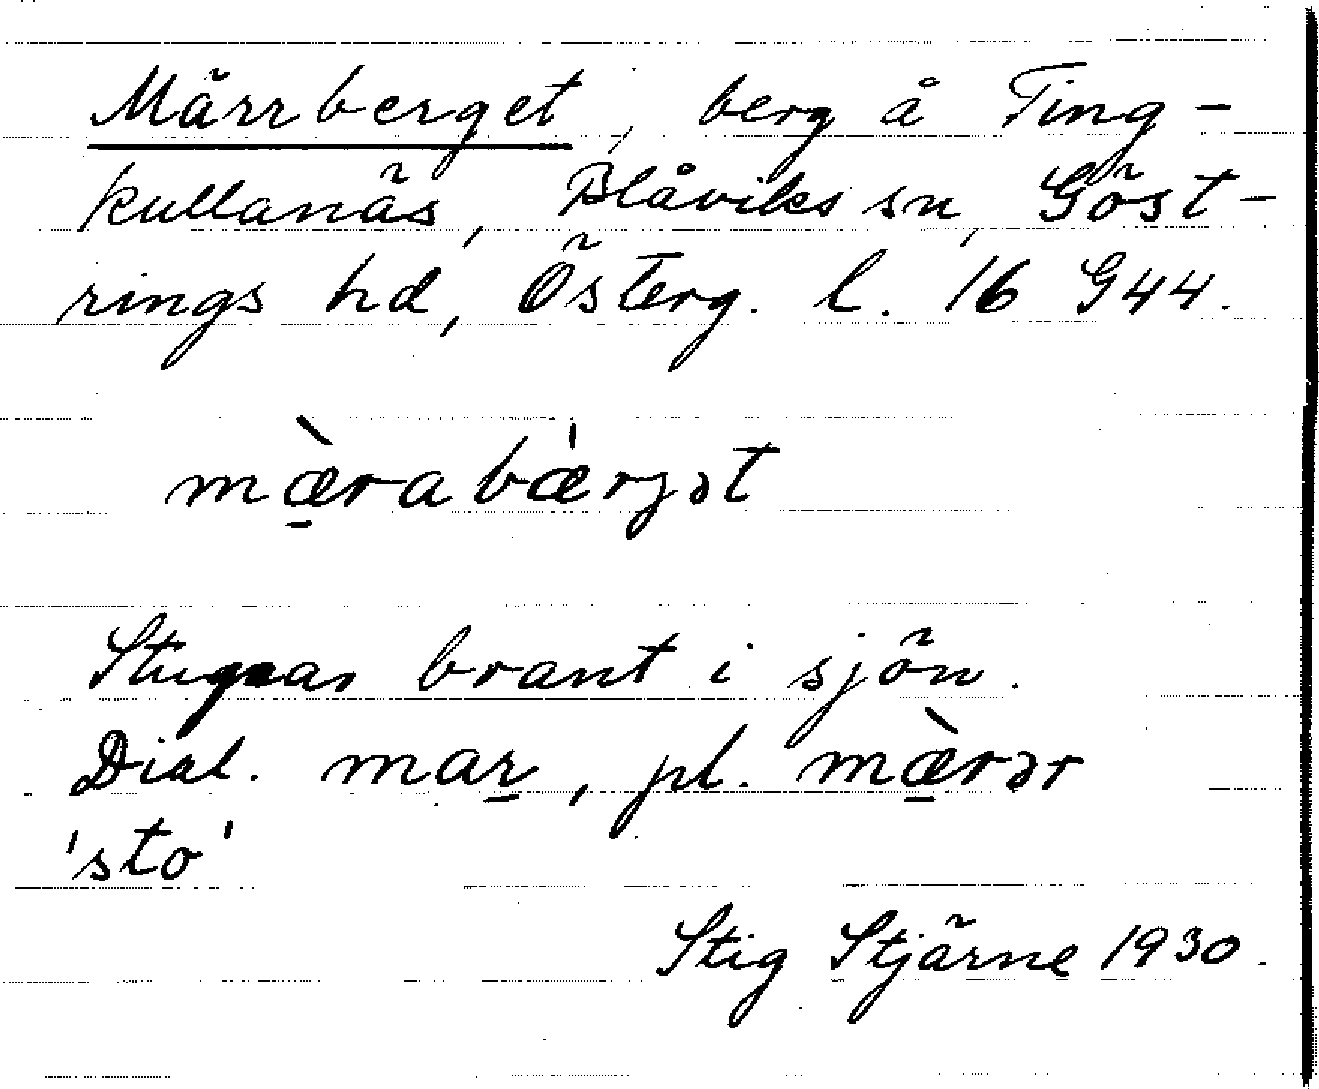 Märrberget, berg å Ting-
kullanäs, Blåviks sn, Göst-
rings hd, Österg. l. 16 G44.
mæ̱̀rabæ̍rgət
Stupar brant i sjön.
Dial. mar̲, pl. mæ̱̀rər
'sto'
Stig Stjärne 1930.